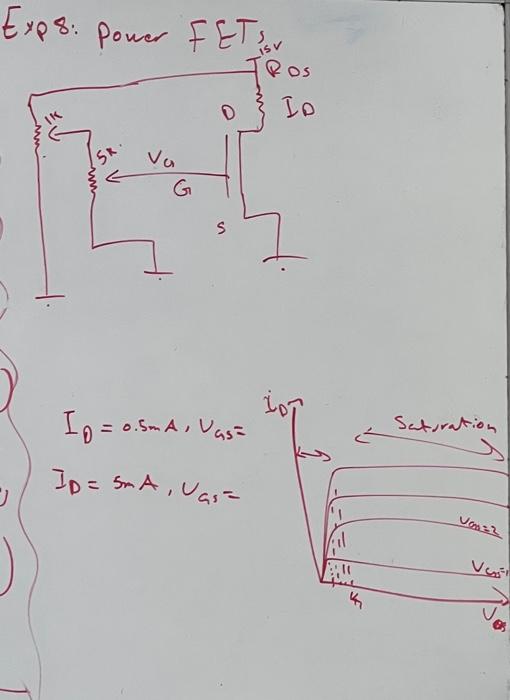 Exp 8: Power FETs
15V
RDS
ID
D
1K
5K
VG
G
S
ID = 0.5mA, VGS=
ID = 5mA, VGS=
iD
Saturation
VGS=2
VGS=1